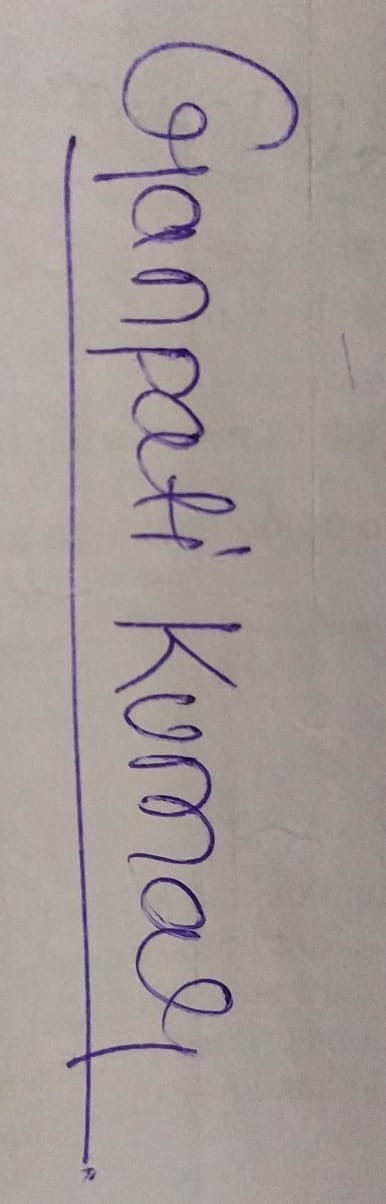 Ganpati Kumar